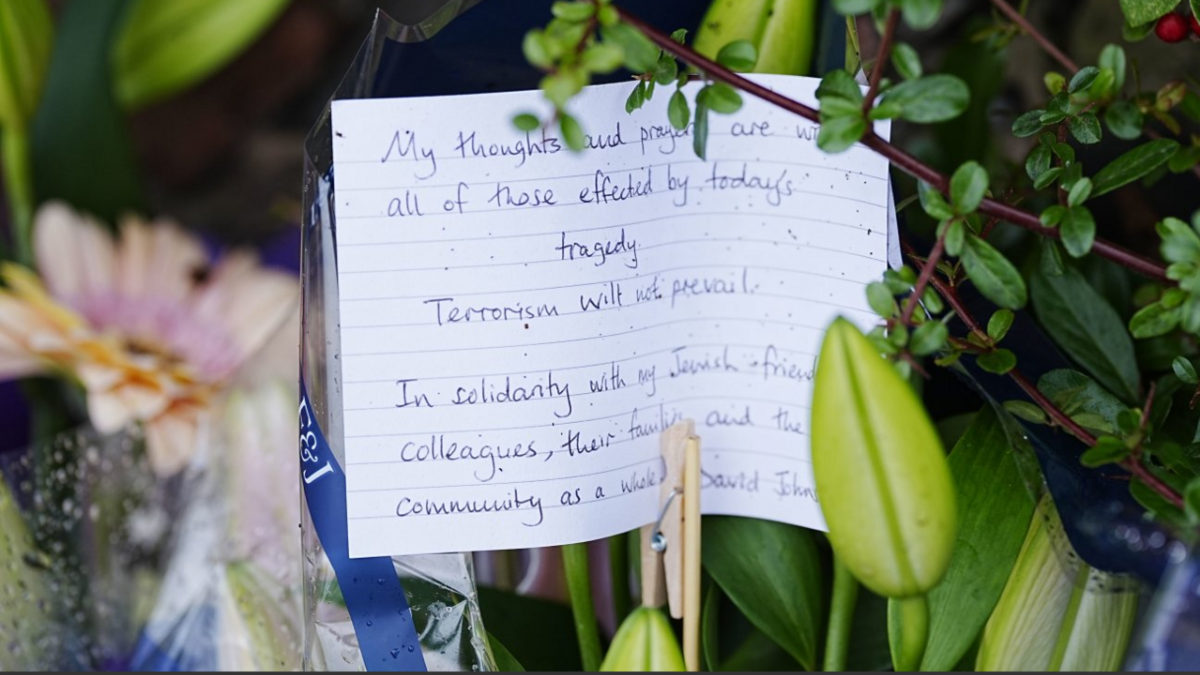 My thoughts and prayers are
all of those effected by today's
tragedy.
Terrorism will not prevail.
In solidarity with my Jewish friend
colleagues, their families and the
community as a whole. David John
E&J